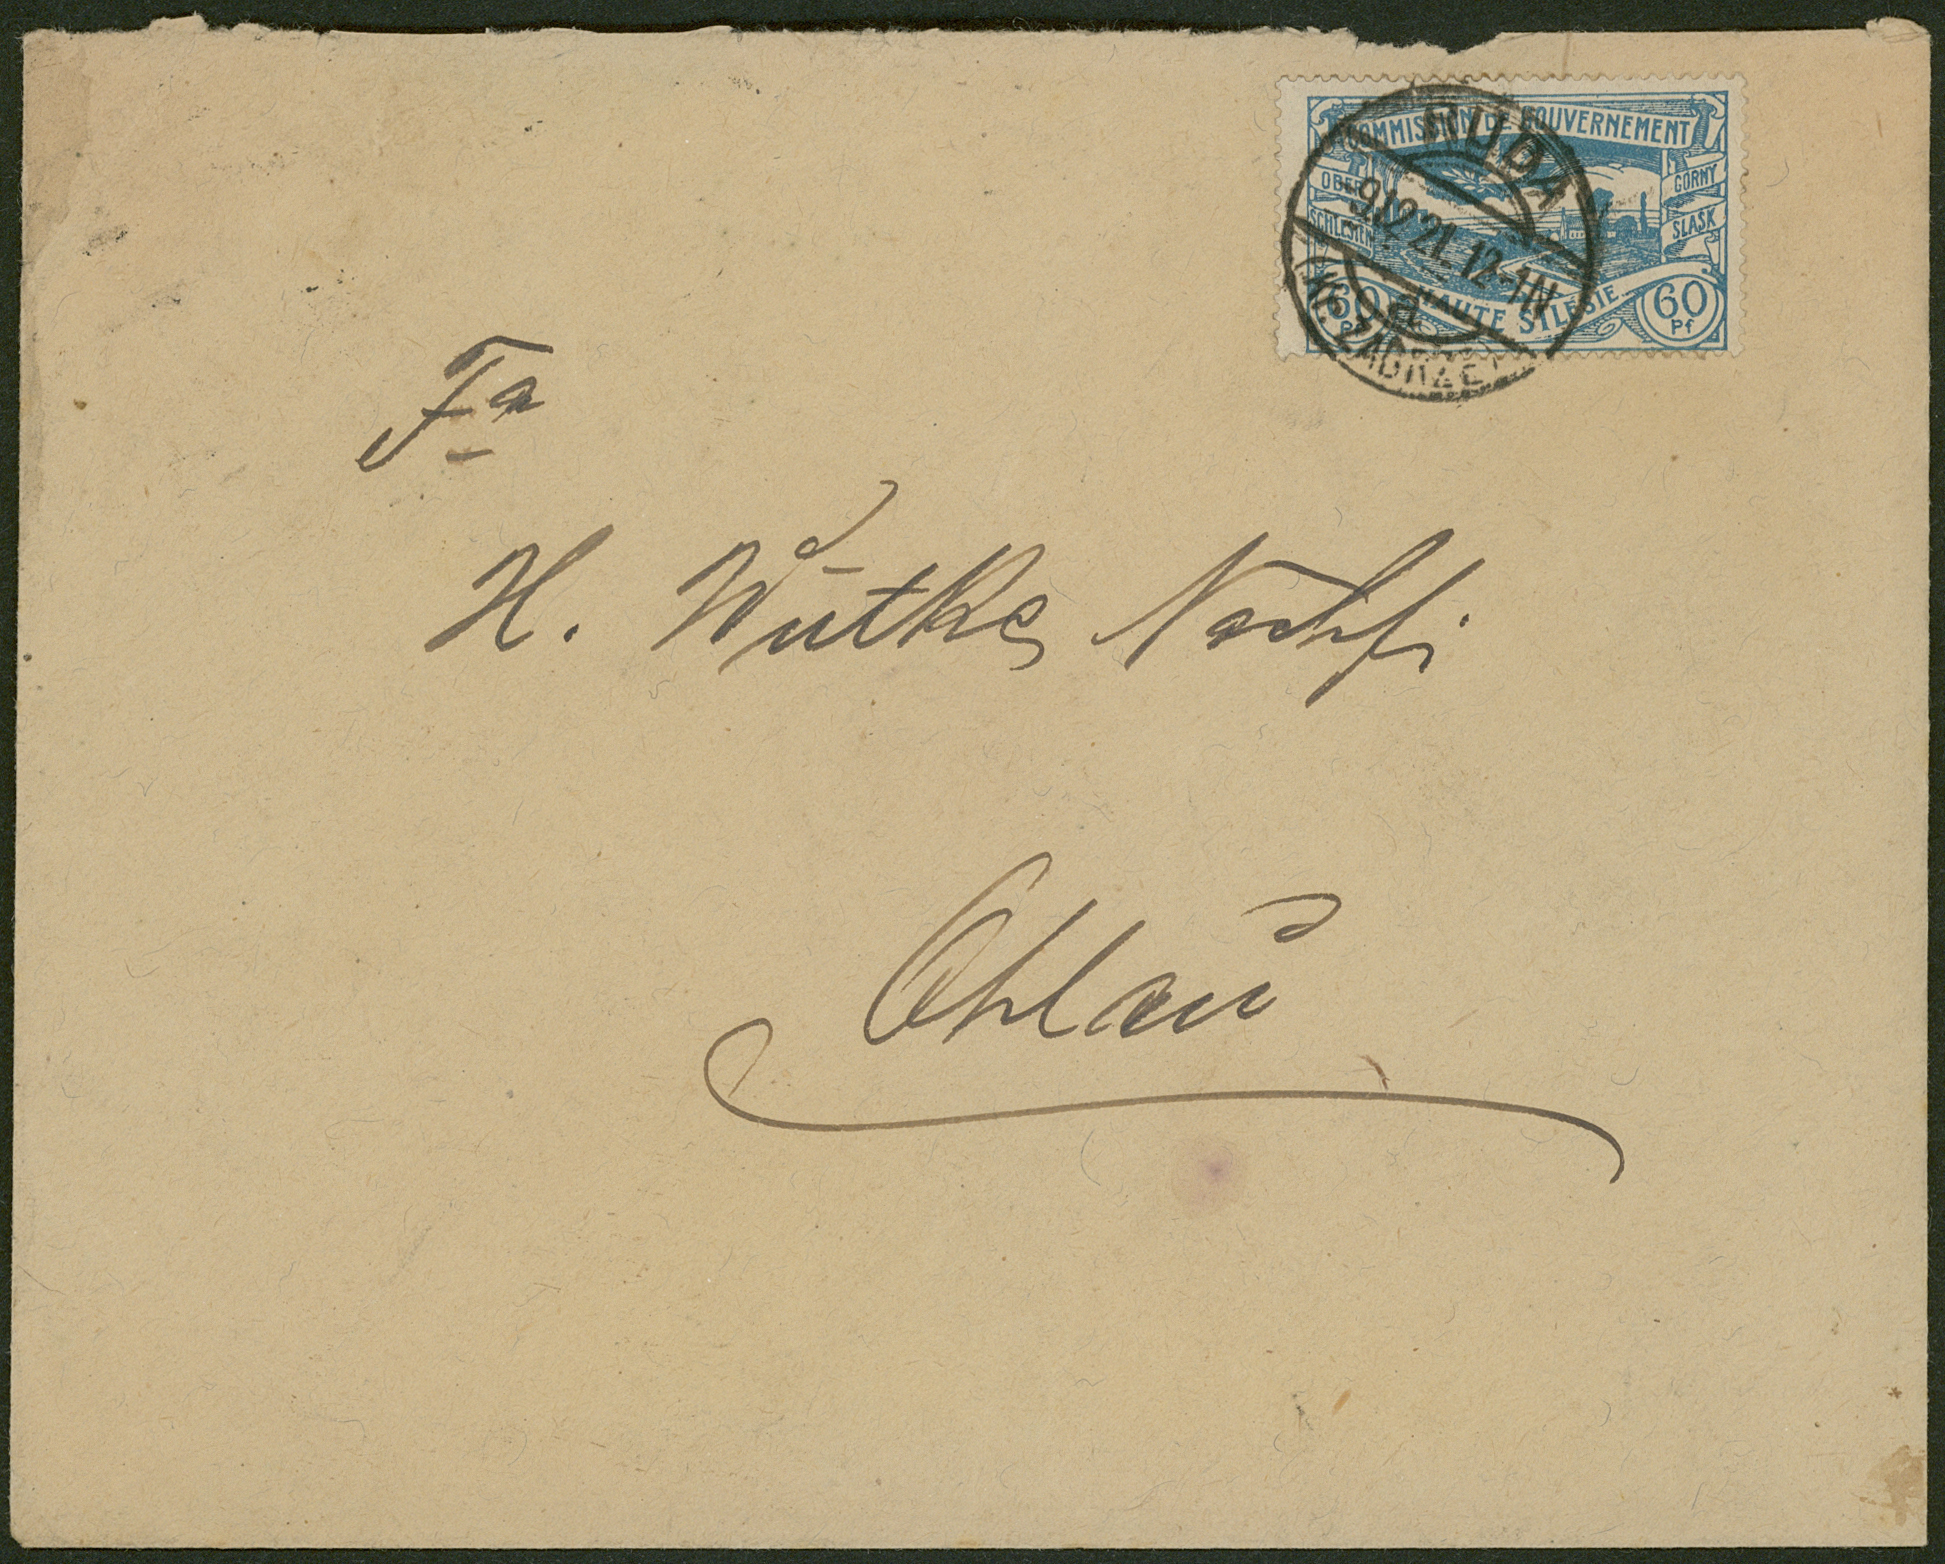 COMMISSION DE GOUVERNEMENT
OBER
SCHLESIEN
GORNY
SLASK
HAUTE SILESIE
60 Pf
60 Pf
RUDA
9.12.21. 12-1N
d
(Kr. ZABRZE)
Fa
H. Wutke Nachf.
Ohlau